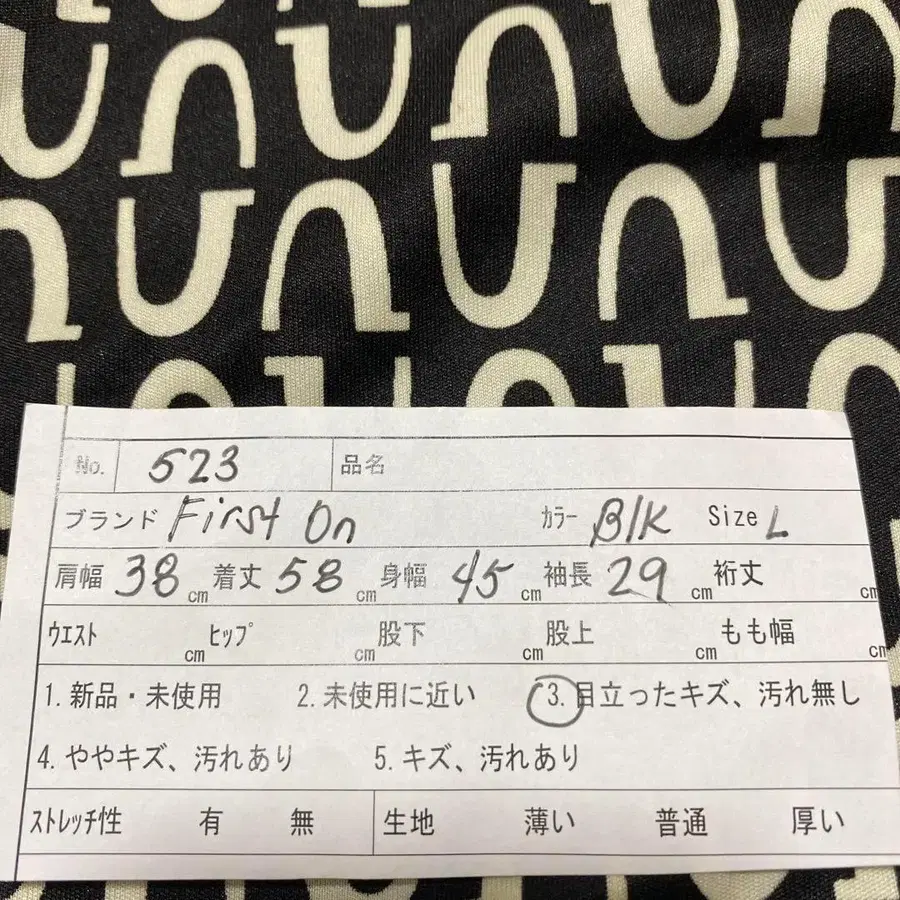 No. 523 品名
ブランド First On カラー Blk Size L
肩幅 38 cm 着丈 58 cm 身幅 45 cm 袖長 29 cm 裄丈 cm
ウエスト cm ヒップ cm 股下 cm 股上 cm もも幅 cm
1. 新品・未使用 2. 未使用に近い 3. 目立ったキズ、汚れ無し
4. ややキズ、汚れあり 5. キズ、汚れあり
ストレッチ性 有 無 生地 薄い 普通 厚い